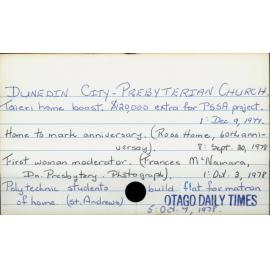 DUNEDIN CITY-PRESBYTERIAN CHURCH.
Taieri home boost. $120,000 extra for PSSA project.
1: Dec. 9, 1977.
Home to mark anniversary. (Ross Home, 60th anni-
versay). 8: Sept. 30, 1978
First woman moderator. (Frances McNamara,
Dn. Presbytery. Photograph). 1: Oct. 3, 1978
Polytechnic students build flat for matron
of home. (St. Andrews) OTAGO DAILY TIMES
5: Oct. 7, 1978.